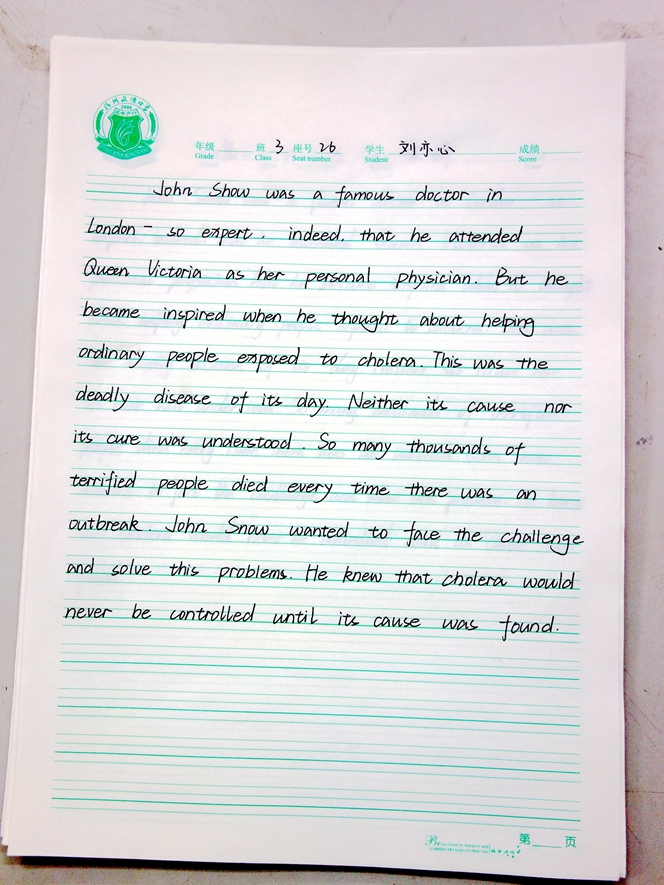 年级 班 3 座号 26 学生 刘亦心 成绩
Grade Class Seat number Student Score
John Show was a famous doctor in
London - so expert, indeed, that he attended
Queen Victoria as her personal physician. But he
became inspired when he thought about helping
ordinary people exposed to cholera. This was the
deadly disease of its day. Neither its cause nor
its cure was understood. So many thousands of
terrified people died every time there was an
outbreak. John Snow wanted to face the challenge
and solve this problems. He knew that cholera would
never be controlled until its cause was found.
第 页